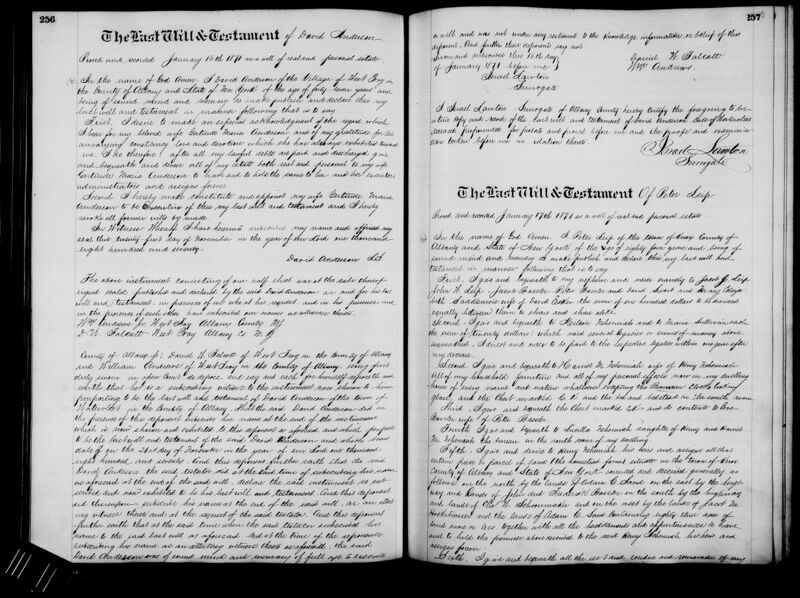 256
The Last Will & Testament of David Anderson
Proved and recorded January 16th 1871 as a will of real and personal estate.
In the name of God Amen I David Anderson of the Village of West Troy in
the County of Albany and State of New York of the age of forty seven years and
being of sound mind and memory do make publish and declare this my
last will and testament in manner following that is to say
First. I desire to make an especial acknowledgment of the regard which
I bear for my beloved wife Gertrude Maria Anderson and of my gratitude for the
unvarying constancy love and devotion which she has always exhibited toward
me. I do therefore after all my lawful debts are paid and discharged give
and bequeath and devise all of my estate both real and personal to my wife
Gertrude Maria Anderson to have and to hold the same to her and her executors
administrators and assigns forever
Second I hereby make constitute and appoint my wife Gertrude Maria
Anderson to be Executrix of this my last will and testament and I hereby
revoke all former wills by me made
In Witness Whereof I have hereunto subscribed my name and affixed my
seal this twenty first day of November in the year of our Lord one thousand
eight hundred and seventy.
David Anderson LS
The above instrument consisting of one half sheet was at the date thereof
signed sealed published and declared by the said David Anderson as and for his last
will and testament in presence of us who at his request and in his presence and
in the presence of each other have subscribed our names as witnesses thereto.
Wm Andrews West Troy Albany County NY.
D. W. Talcott West Troy Albany Co N.Y.
County of Albany ss: Daniel W. Talcott of West Troy in the County of Albany
and William Andrews of West Troy in the County of Albany being first
duly sworn in open Court do depose and say and each for himself deposeth and
saith that he is a subscribing witness to the instrument now shown to him
purporting to be the last will and testament of David Anderson of the town of
Watervliet in the County of Albany. That the said David Anderson did in
the presence of this deponent subscribe his name at the end of the instrument
which is now shown and exhibited to this deponent as aforesaid and which purports
to be the last will and testament of the said David Anderson and which bears
date on the 21st day of November in the year of our Lord one thousand
eight hundred and seventy And this deponent further saith that the said
David Anderson the said testator did at the same time of subscribing his name
as aforesaid at the end of the said will declare the said instrument so sub-
scribed and now exhibited to be his last will and testament. And this deponent
did thereupon subscribe his name at the end of the said will as an attest-
ing witness thereto and at the request of the said testator. And this deponent
further saith that at the said time when the said testator subscribed his
name to the said last will as aforesaid and at the time of the deponents
subscribing his name as an attesting witness thereto as aforesaid the said
David Anderson was of sound mind and memory of full age to execute
257
a will and was not under any restraint to the knowledge information or belief of this
deponent. And further these deponents say not.
Sworn and subscribed this 16th day
of January 1871 before me
Israel Lawton
Surrogate
Daniel W. Talcott
Wm Andrews.
I Israel Lawton Surrogate of Albany County hereby certify the foregoing to be a
true copy and record of the last will and testament of David Anderson late of Watervliet
deceased propounded for probate and proved before me and the proofs and examina-
tions taken before me in relation thereto.
Israel Lawton
Surrogate
The Last Will & Testament Of Peter Leip
Proved and recorded January 17th 1871 as a will of real and personal estate
In the name of God Amen I Peter Leip of the town of Knox County of
Albany and State of New York of the age of eighty four years and being of
sound mind and memory do make publish and declare this my last will and
testament in manner following that is to say
First. I give and bequeath to my nephews and niece namely to Jacob J Leip
John W Leip Jacob Bassler Peter Bassler and David and Mary Eliza-
beth wife of David the sum of six hundred dollars to be divided
equally between them to share and share alike.
Second. I give and bequeath to Nehemiah and to Maria Sullivan each
the sum of twenty dollars which said several legacies or sums of money above
bequeathed I direct and order to be paid to the respective legatees within one year after
my decease.
Second I give and bequeath to Harriet M Nehemiah wife of Henry Nehemiah
All of my household furniture and all of my personal effects now in my dwelling
house of every name and nature whatsoever excepting the Clothes looking
glass, and the Chest marked and the bed and bedstead in the south room
Third. I give and bequeath the Chest marked and its contents to
Bassler wife of Peter Bassler.
Fourth I give and bequeath to Luella Nehemiah daughter of Henry and Harriet
M. Nehemiah the bureau in the south room of my dwelling.
Fifth. I give and devise to Henry Nehemiah his heirs and assigns all that
certain piece or parcel of land the homestead farm situate in the town of Knox
County of Albany and State of New York bounded and described generally as
follows on the north by the lands of Adam C. Sand on the east by the high
way and lands of John and Frederick Bassler on the south by the highway
and lands of Chas. W. Schoonmaker and on the west by the lands of Jacob M
and the lands of Adam C. Sand Containing eighty three acres of
land more or less together with all the hereditaments and appurtenances to have
and to hold the premises above devised to the said Henry Nehemiah his heirs and
assigns forever
Sixth. I give and bequeath all the rest and residue and remainder of my